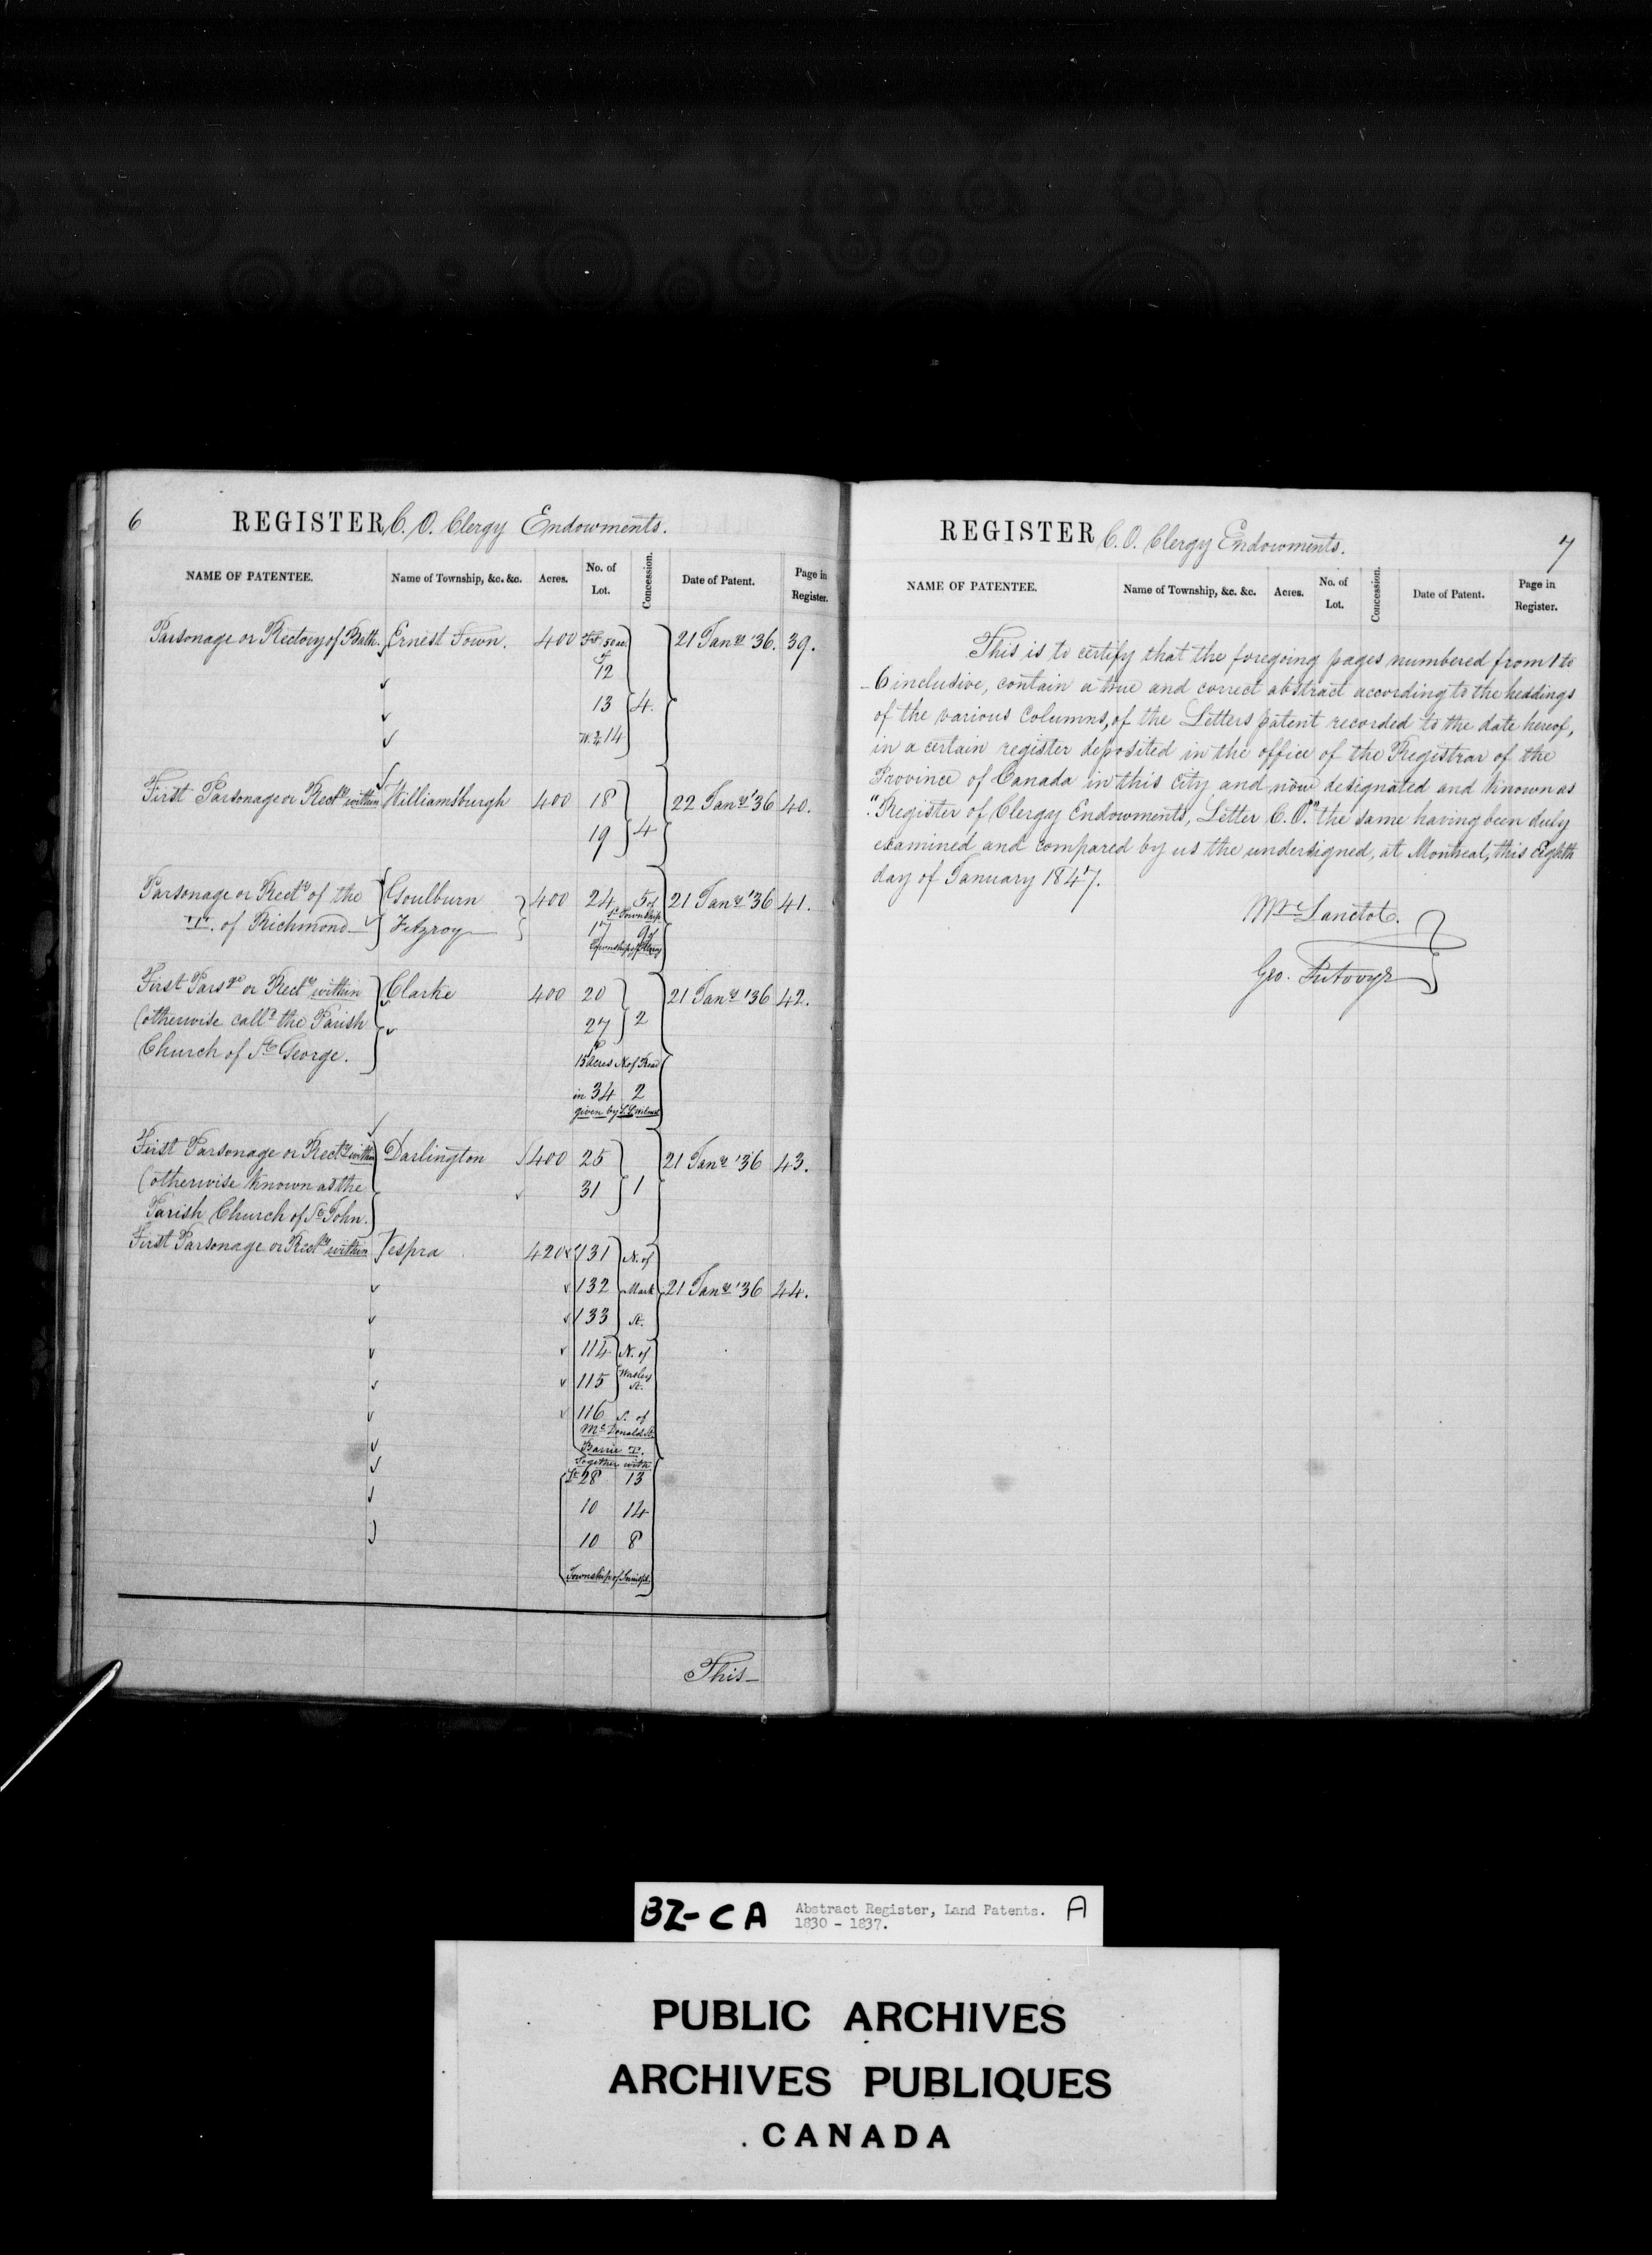 6 REGISTER C. O. Clergy Endowments.
NAME OF PATENTEE. Name of Township, &c. &c. Acres. No. of Lot. Concession. Date of Patent. Page in Register.
Parsonage or Rectory of Bath. Ernest Town. 400 50 ac. 21 Jany '36. 39.
12
13 4.
W. ½ 14
First Parsonage or Recty within Williamsburgh 400 18 22 Jany '36 40.
19 4
Parsonage or Recty of the Goulburn 400 24 5 of 21 Jany '36 41.
Township
T. of Richmond Fitzroy 17 9 of
Township of Fitzroy
First Parsge or Recty within Clarke 400 20 21 Jany '36 42.
(otherwise calld the Parish 27 2
Church of St George. 15 acres N. of Road
in 34 2
given by
First Parsonage or Recty within Darlington 400 25 21 Jany '36 43.
(otherwise known as the 31 1
Parish Church of St John.
First Parsonage or Recty within Vespra 420 131 N. of
132 Mark 21 Jany '36 44.
133 St.
114 N. of
115 Worsley St.
116 S. of
McDonald St.
Barrie T.
Together with
28 13
10 14
10 8
Township of Innisfil
This
REGISTER C. O. Clergy Endowments. 7
NAME OF PATENTEE. Name of Township, &c. &c. Acres. No. of Lot. Concession. Date of Patent. Page in Register.
This is to certify that the foregoing pages numbered from 1 to
6 inclusive, contain a true and correct abstract according to the headings
of the various Columns, of the Letters patent recorded to the date hereof,
in a certain register deposited in the office of the Registrar of the
Province of Canada in this City and now designated and known as
"Register of Clergy Endowments, Letter C. O." the same having been duly
examined and compared by us the undersigned, at Montreal, this Eighth
day of January 1847.
Lanctot.
Geo.
BZ-CA Abstract Register, Land Patents. A
1830 - 1837.
PUBLIC ARCHIVES
ARCHIVES PUBLIQUES
CANADA